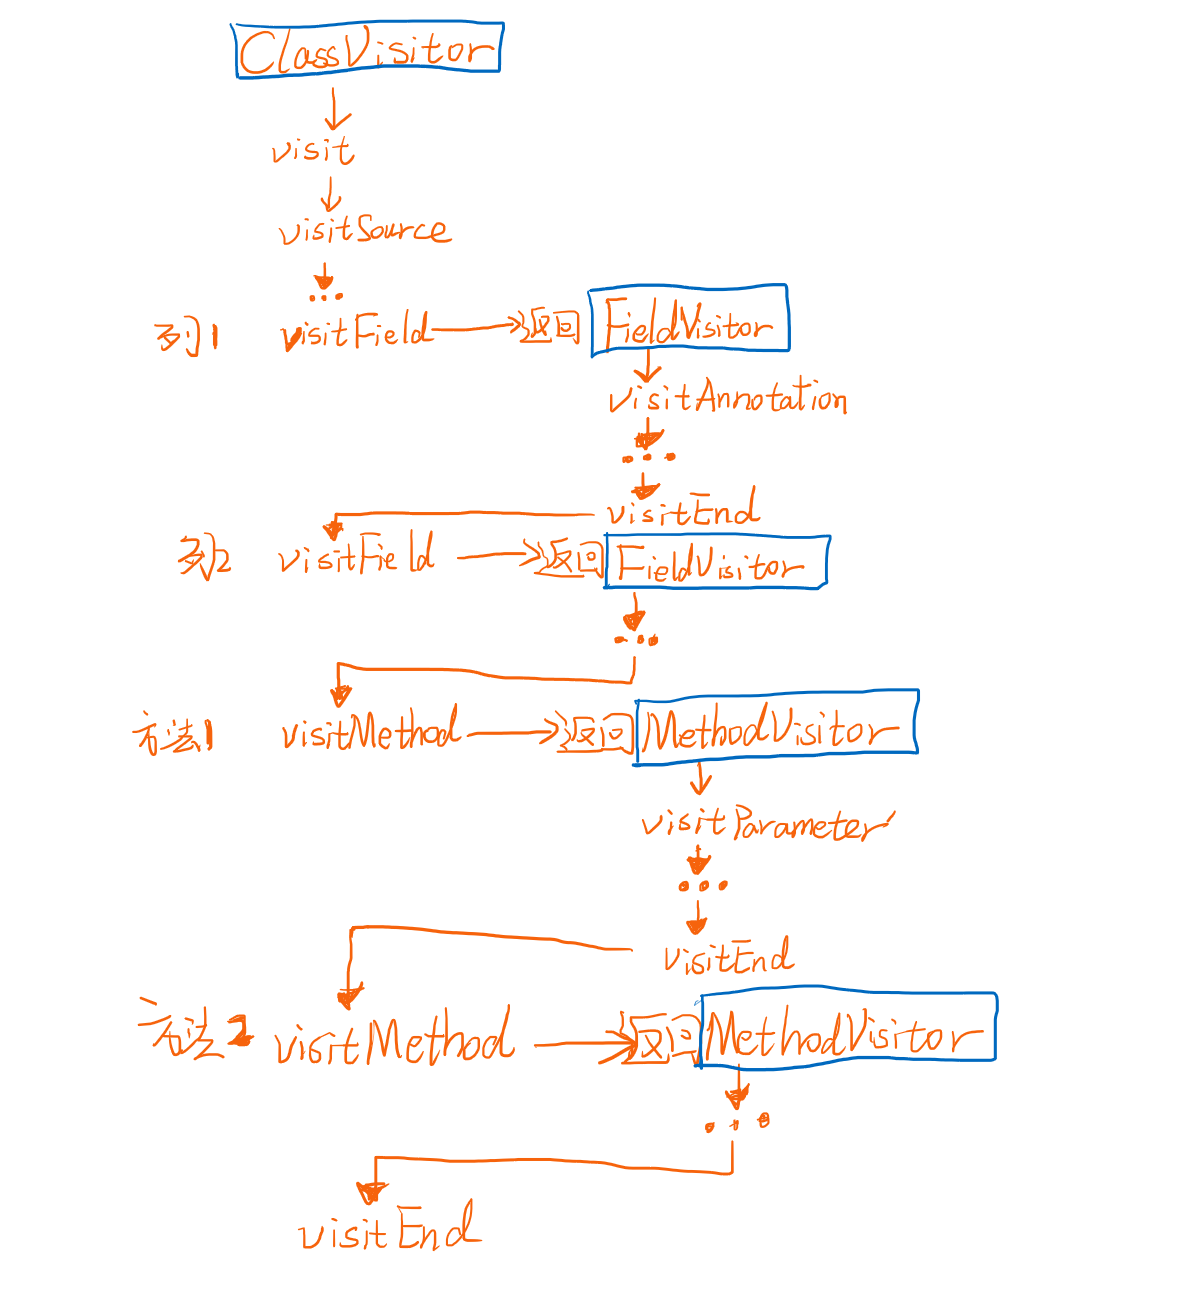 ClassVisitor
visit
visitSource
...
列1 visitField 返回 FieldVisitor
visitAnnotation
...
visitEnd
列2 visitField 返回 FieldVisitor
...
方法1 visitMethod 返回 MethodVisitor
visitParameter
...
visitEnd
方法2 visitMethod 返回 MethodVisitor
...
visitEnd